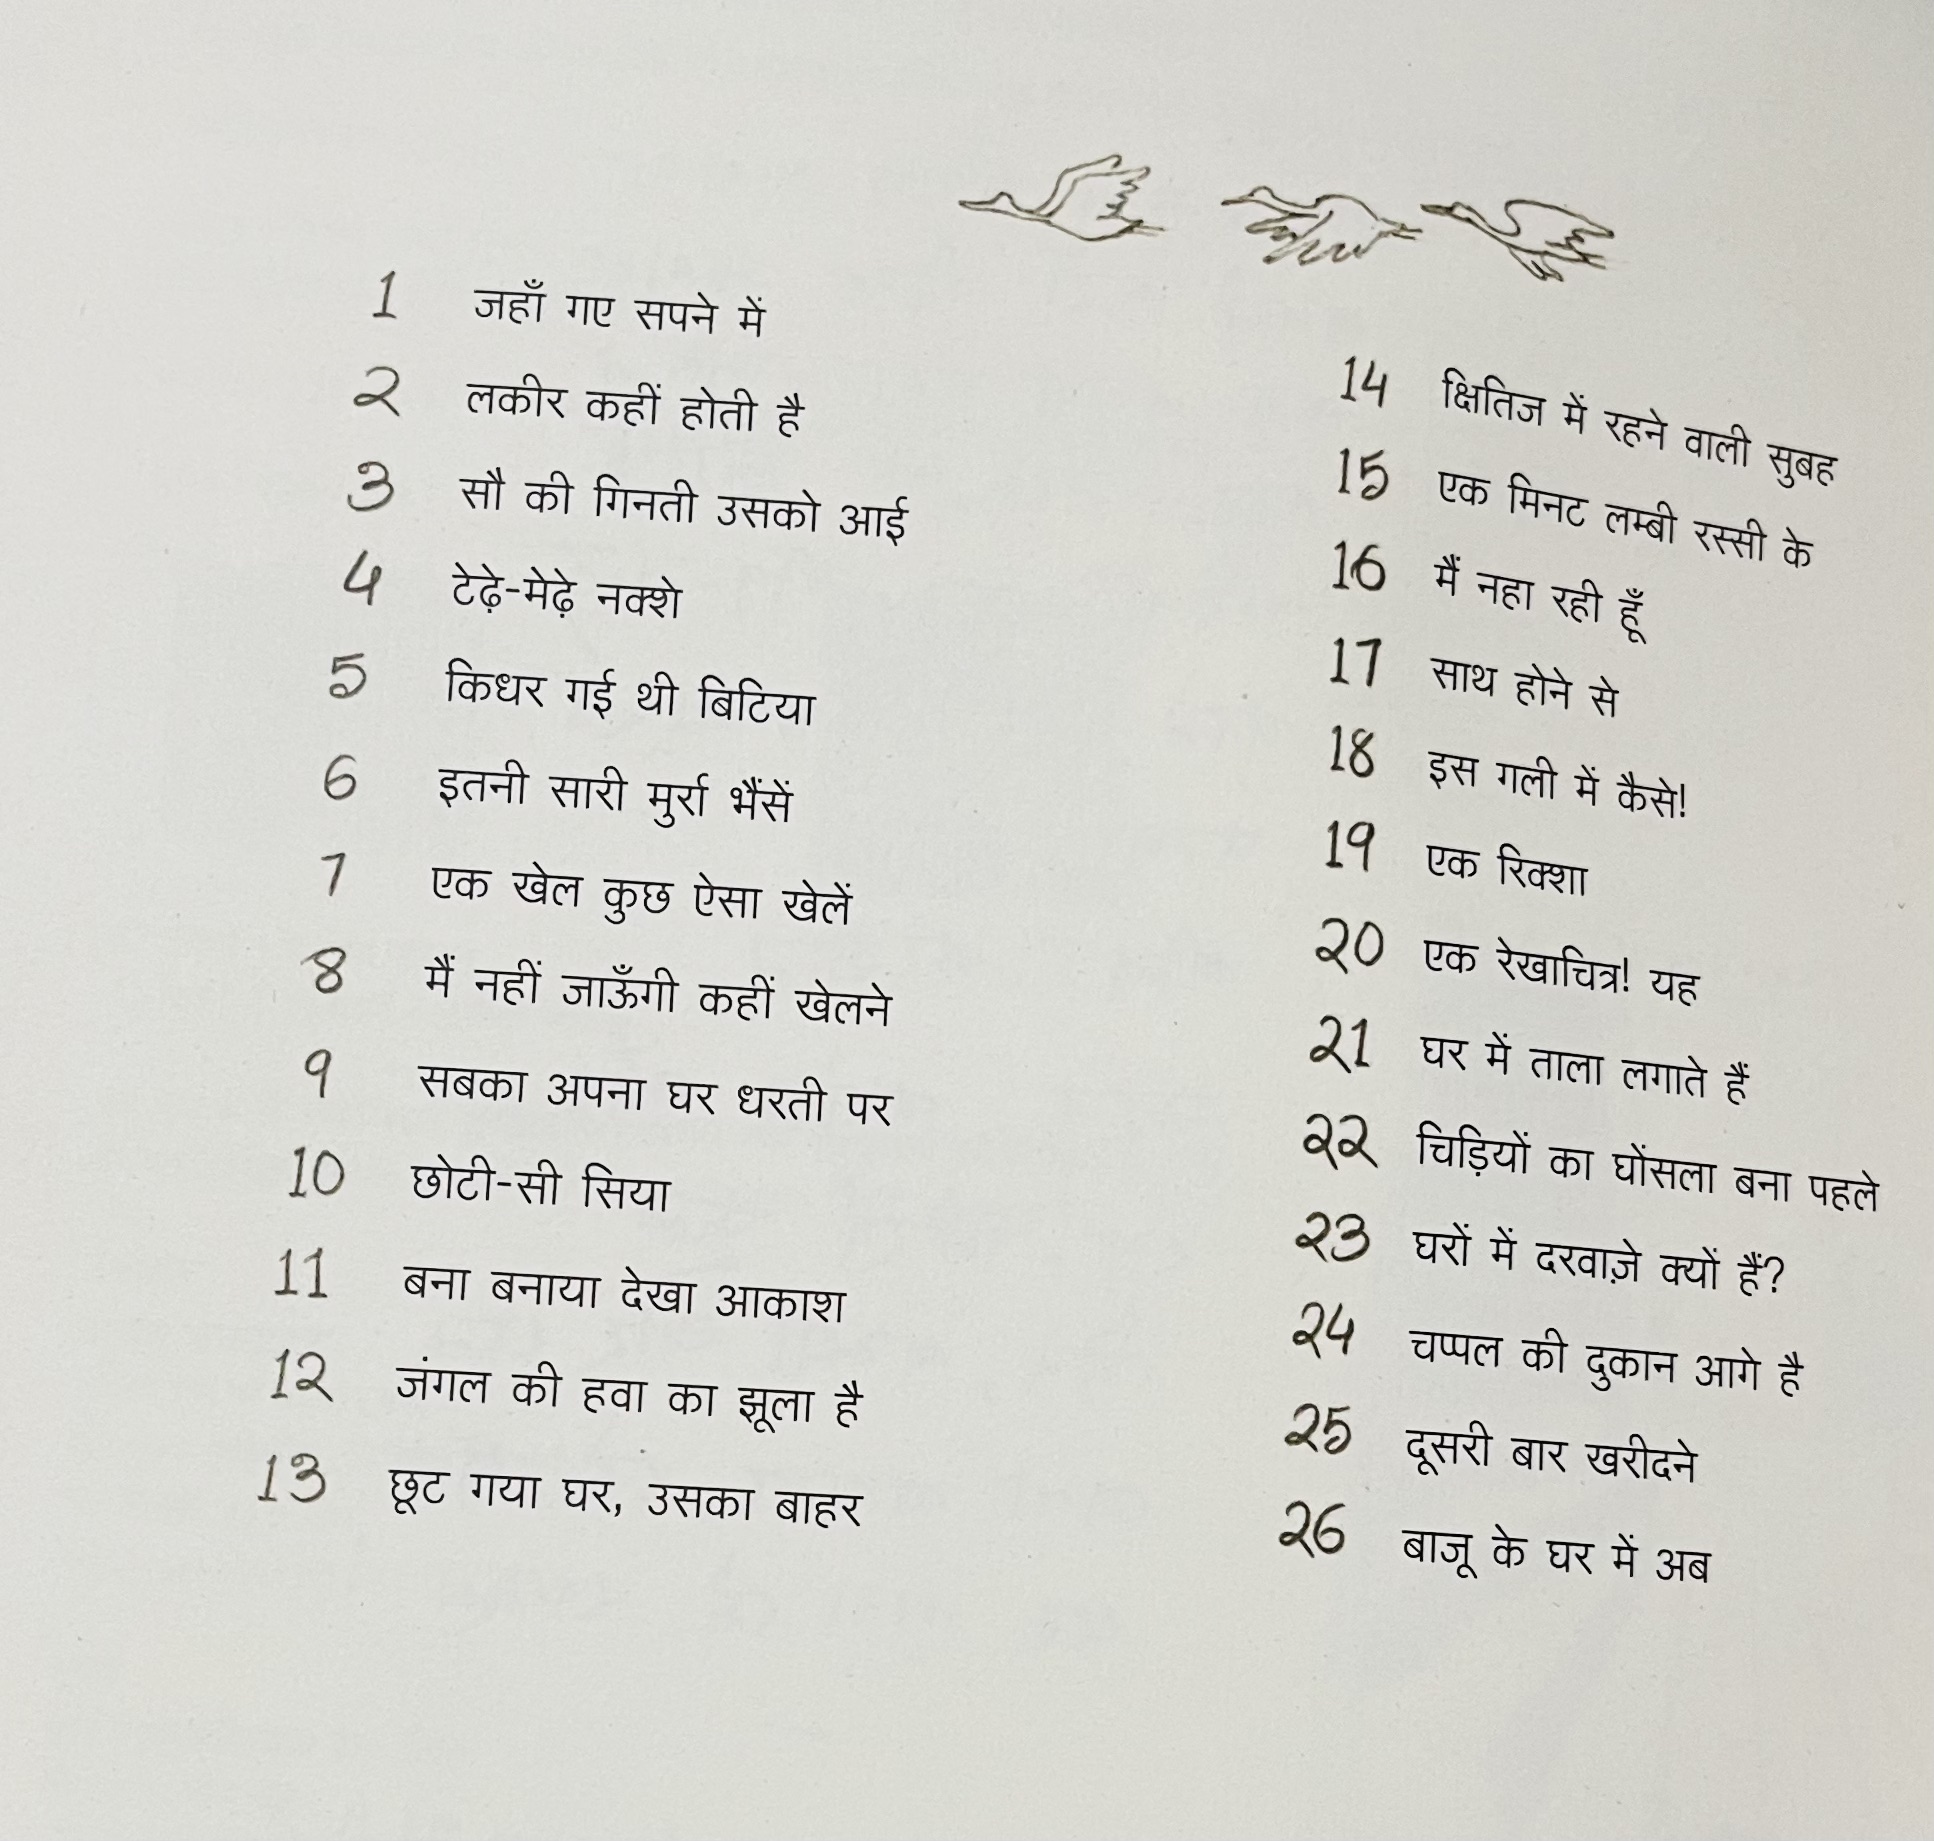 1 जहाँ गए सपने में
2 लकीर कहीं होती है
3 सौ की गिनती उसको आई
4 टेढ़े-मेढ़े नक्शे
5 किधर गई थी बिटिया
6 इतनी सारी मुर्रा भैंसें
7 एक खेल कुछ ऐसा खेलें
8 मैं नहीं जाऊँगी कहीं खेलने
9 सबका अपना घर धरती पर
10 छोटी-सी सिया
11 बना बनाया देखा आकाश
12 जंगल की हवा का झूला है
13 छूट गया घर, उसका बाहर
14 क्षितिज में रहने वाली सुबह
15 एक मिनट लम्बी रस्सी के
16 मैं नहा रही हूँ
17 साथ होने से
18 इस गली में कैसे!
19 एक रिक्शा
20 एक रेखाचित्र! यह
21 घर में ताला लगाते हैं
22 चिड़ियों का घोंसला बना पहले
23 घरों में दरवाज़े क्यों हैं?
24 चप्पल की दुकान आगे है
25 दूसरी बार खरीदने
26 बाजू के घर में अब